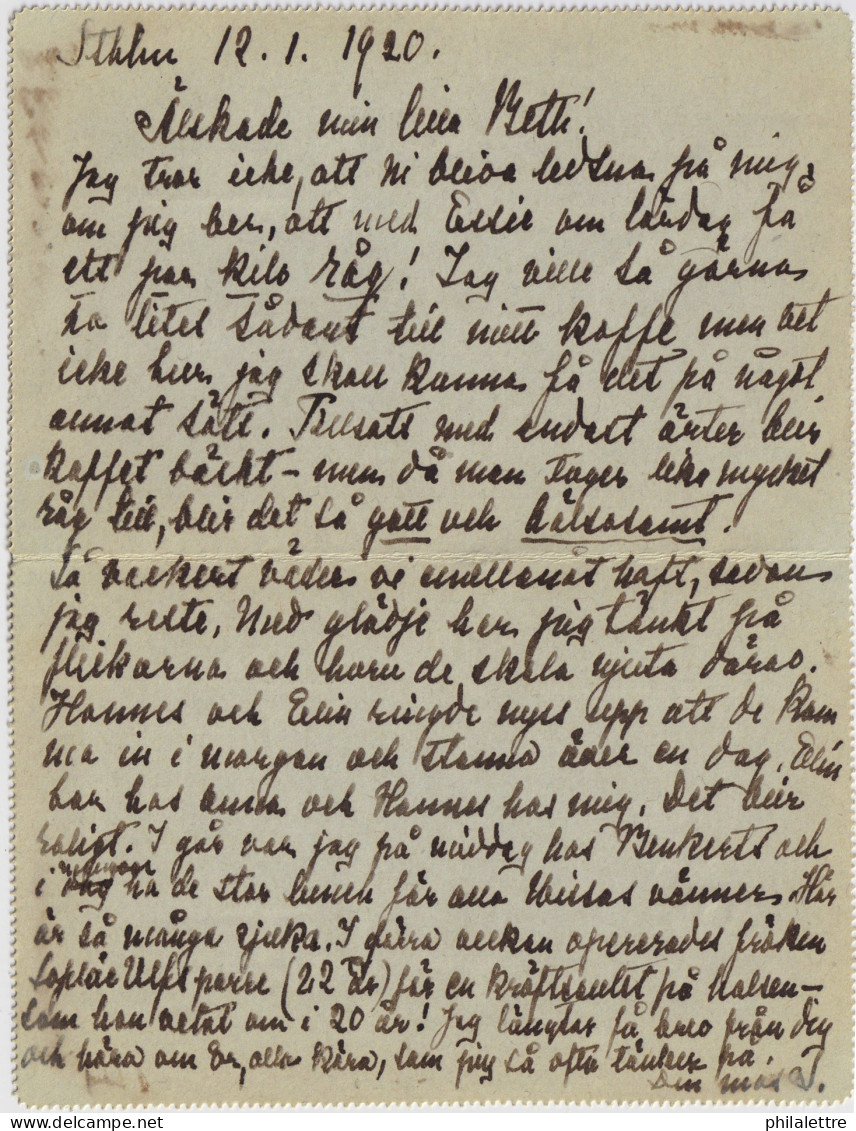 Sthlm 12.1.1920.
Älskade min lilla Beth!
Jag tror icke, att Ni bliva ledsna på mig,
om jag ber, att med Essie om lördag få
ett par kilo råg! Jag ville så gärna
ha litet sådant till mitt kaffe men vet
icke hur jag skall kunna få det på något
annat sätt. Tillsats med endast ärter blir
kaffet bäskt – men då man tager lika mycket
råg till, blir det så gott och hälsosamt.
Så vackert väder vi emellanåt haft, sedan
jag reste. Med glädje har jag tänkt på
flickorna och huru de skola njuta därav.
Hannes och Elin ringde nyss upp att de kom
ma in i morgon och stanna över en dag. Elin
bor hos Anna och Hannes hos mig. Det blir
roligt. I går var jag på middag hos Benkerts och
i morgon ha de stor lunch för alla vänner. Här
är så många sjuka. I förra veckan opererades fröken
Sophie Ulfsparre (22 år) för en kräftsvulst på halsen –
som hon vetat om i 20 år! Jag längtar få brev från dig
och höra om Er, alla kära, som jag så ofta tänker på.
Din mos T.
philalettre